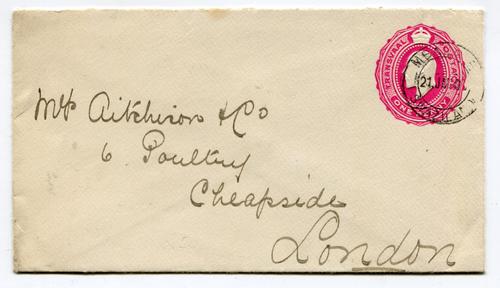 TRANSVAAL POSTAGE
ONE PENNY
Mrs Aitchison & Co
6 Poultry
Cheapside
London